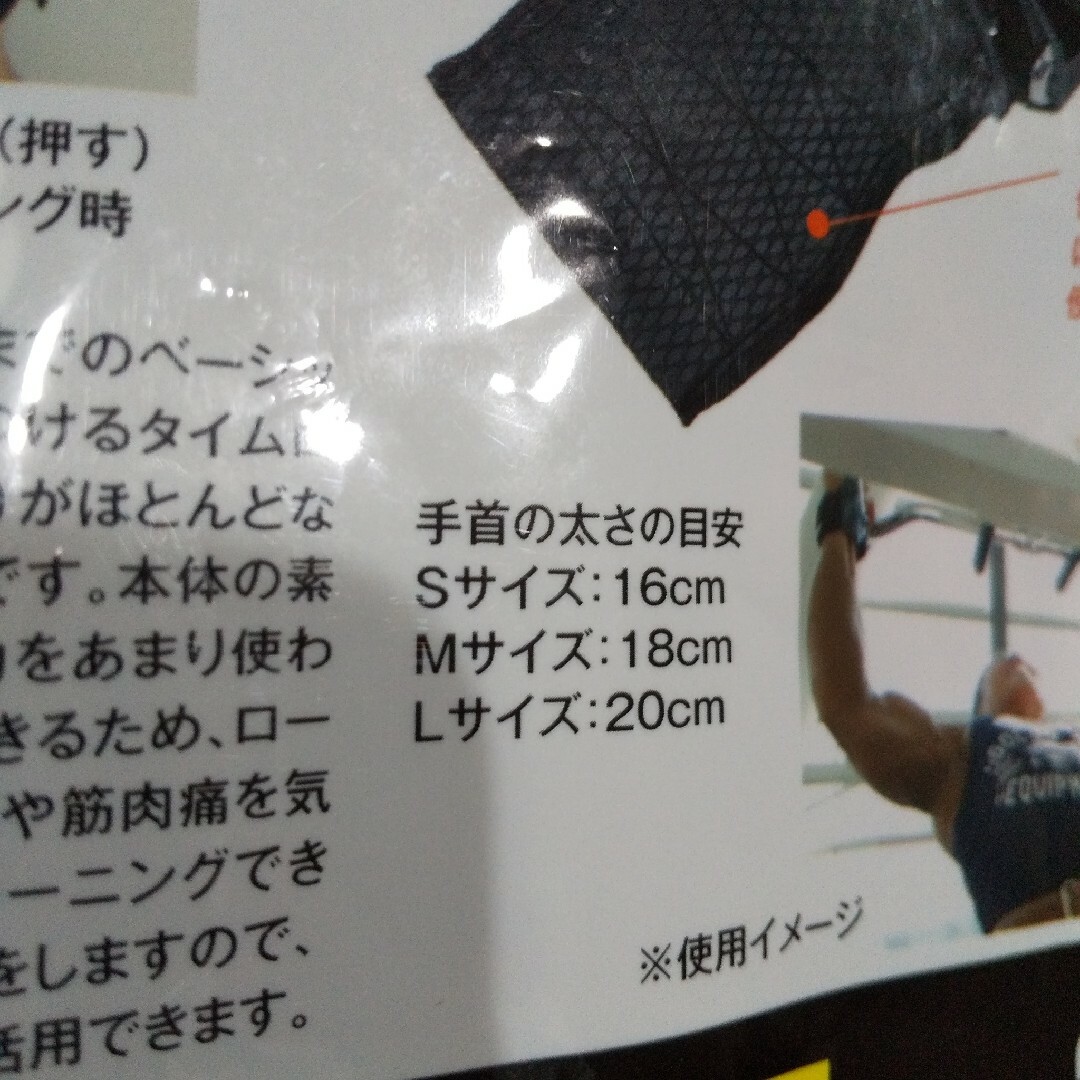 (押す)
ング時
までのベーシッ
けるタイム
がほとんどな
です。本体の素
をあまり使わ
きるため、ロー
や筋肉痛を気
ーニングでき
をしますので、
活用できます。
手首の太さの目安
Sサイズ:16cm
Mサイズ:18cm
Lサイズ:20cm
※使用イメージ